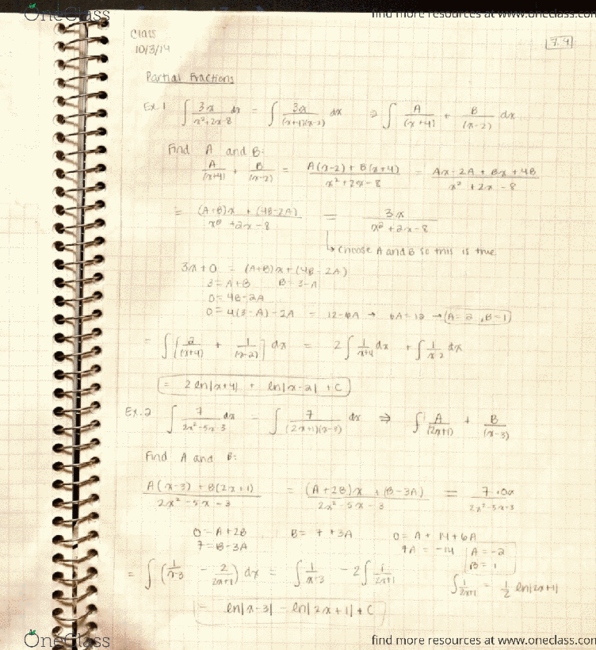 OneClass
find more resources at www.oneclass.com
Class
10/3/14
7.4
Partial Fractions
Ex. 1 ∫ 3x/(x²+2x-8) dx = ∫ 3x/((x+4)(x-2)) dx = ∫ A/(x+4) + B/(x-2) dx
Find A and B:
A/(x+4) + B/(x-2) = (A(x-2) + B(x+4))/(x²+2x-8) = (Ax-2A + Bx + 4B)/(x²+2x-8)
= ((A+B)x + (4B-2A))/(x²+2x-8) = 3x/(x²+2x-8)
↳ choose A and B so this is true
3x+0 = (A+B)x + (4B-2A)
3 = A+B B = 3-A
0 = 4B-2A
0 = 4(3-A)-2A = 12-6A → 6A=12 → A=2, B=1
= ∫ [2/(x+4) + 1/(x-2)] dx = 2∫ 1/(x+4) dx + ∫ 1/(x-2) dx
= 2 ln|x+4| + ln|x-2| + C
Ex. 2 ∫ 7/(2x²-5x-3) dx = ∫ 7/((2x+1)(x-3)) dx ⇒ ∫ A/(2x+1) + B/(x-3)
Find A and B:
(A(x-3) + B(2x+1))/(2x²-5x-3) = ((A+2B)x + (B-3A))/(2x²-5x-3) = (7+0x)/(2x²-5x-3)
0 = A+2B B = 7+3A 0 = A + 14 + 6A
7 = B-3A A = -14 A = -2
B = 1
= ∫ (1/(x-3) - 2/(2x+1)) dx = ∫ 1/(x-3) - 2∫ 1/(2x+1) ∫ 1/(2x+1) = 1/2 ln|2x+1|
= ln|x-3| - ln|2x+1| + C
OneClass
find more resources at www.oneclass.com